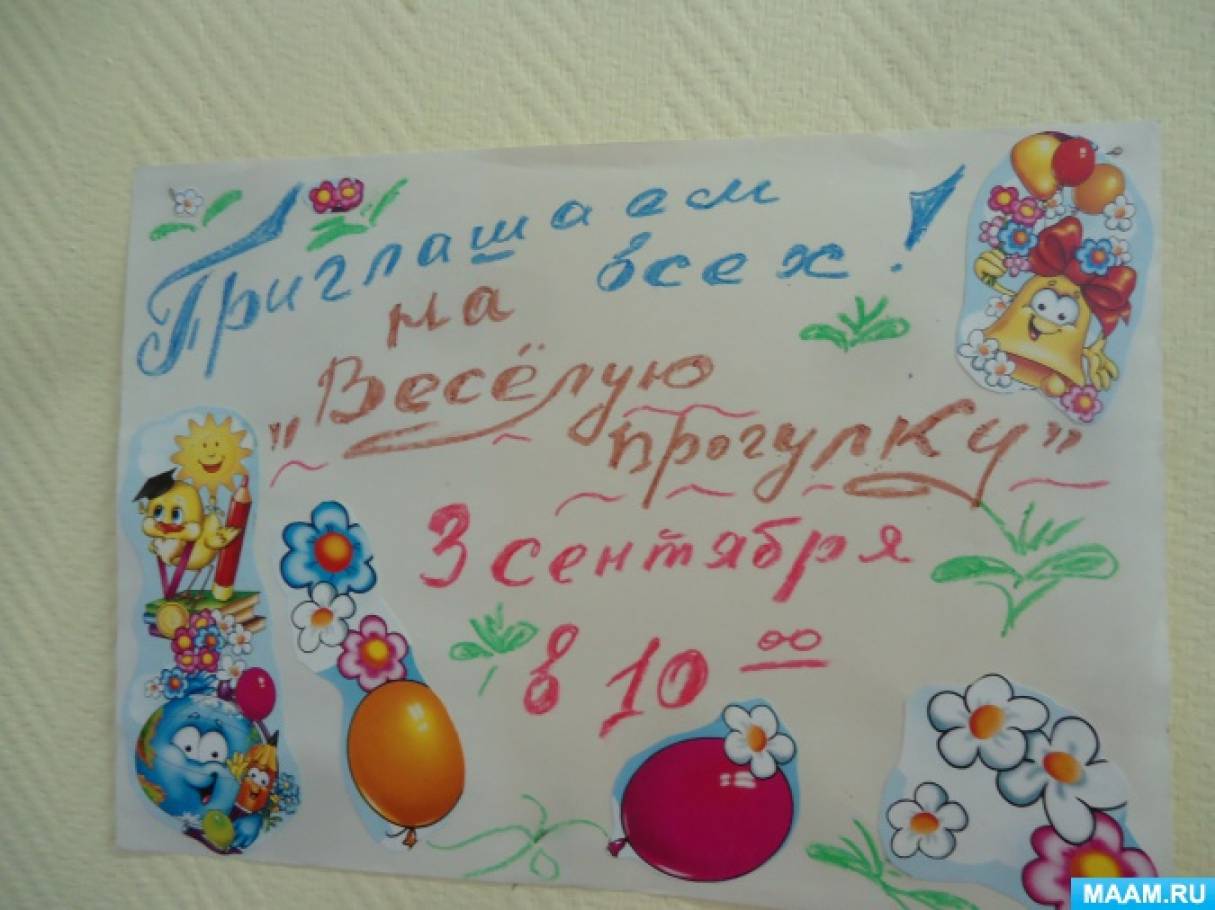 Приглашаем
всех!
на
„Весёлую
прогулку”
3 сентября
в 10 00
MAAM.RU